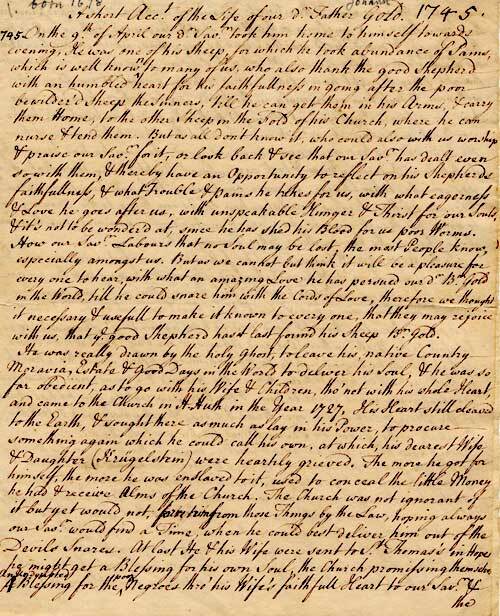 born 1678 Johann
A short Acct. of the Life of our dr. Father Gold. 1745.
1745. On the 9th. of April our dr. Savr. took him home to himself towards
Evening. He was one of his Sheep, for which he took abundance of Pains,
which is well known to many of us, who also thank the good Shepherd
with an humbled heart for his faithfullness in going after the poor
bewilder'd Sheep the Sinners, till he can get them in his Arms, & carry
them Home, to the other Sheep in the Fold of his Church, where he can
nurse & tend them. But as all don't know it, who could also with us worship
& praise our Savr. for it, or look back & see that our Savr. has dealt even
so with them, & thereby have an Opportunity to reflect on his Shepherds
faithfullness, & what Trouble & Pains he takes for us, with what eagerness
& Love he goes after us, with unspeakable Hunger & Thirst for our Souls
& it's not to be wonder'd at, since he has shed his Blood for us poor Worms.
How our Savr. Labours that no Soul may be lost, the most People know,
especially amongst us. But as we cannot but think it will be a pleasure for
every one to hear, with what an amazing Love he has persued our dr. Br. Gold
in the World, till he could snare him with the Cords of Love, therefore we thought
it necessary & usefull to make it known to every one, that they may rejoice
with us, that ye. good Shepherd has at last found his Sheep Br. Gold.
He was really drawn by the holy Ghost, to leave his native Country
Moravia, Estate & Good Days in the World to deliver his Soul, & he was so
far obedient, as to go with his Wife & Children, tho' not with his whole Heart,
and came to the Church in H. Huth in the Year 1727. His Heart still cleaved
to the Earth, & sought there as much as lay in his Power, to procure
something again which he could call his own, at which, his dearest Wife
& Daughter (Krügelstein) were heartily grieved. The more he got for
himself, the more he was enslaved to it, used to conceal the little Money
he had & receive Alms of the Church. The Church was not ignorant of
it but yet would not from those Things by the Law, hoping always
our Savr. would find a Time, when he could best deliver him out of the
Devils Snares. At last He & his Wife were sent to St. Thomas's in Hope
he might get a Blessing for his own Soul, the Church promissing themselves
a Blessing for the poor Negroes thro' his Wife's faithfull Heart to our Savr. &
the